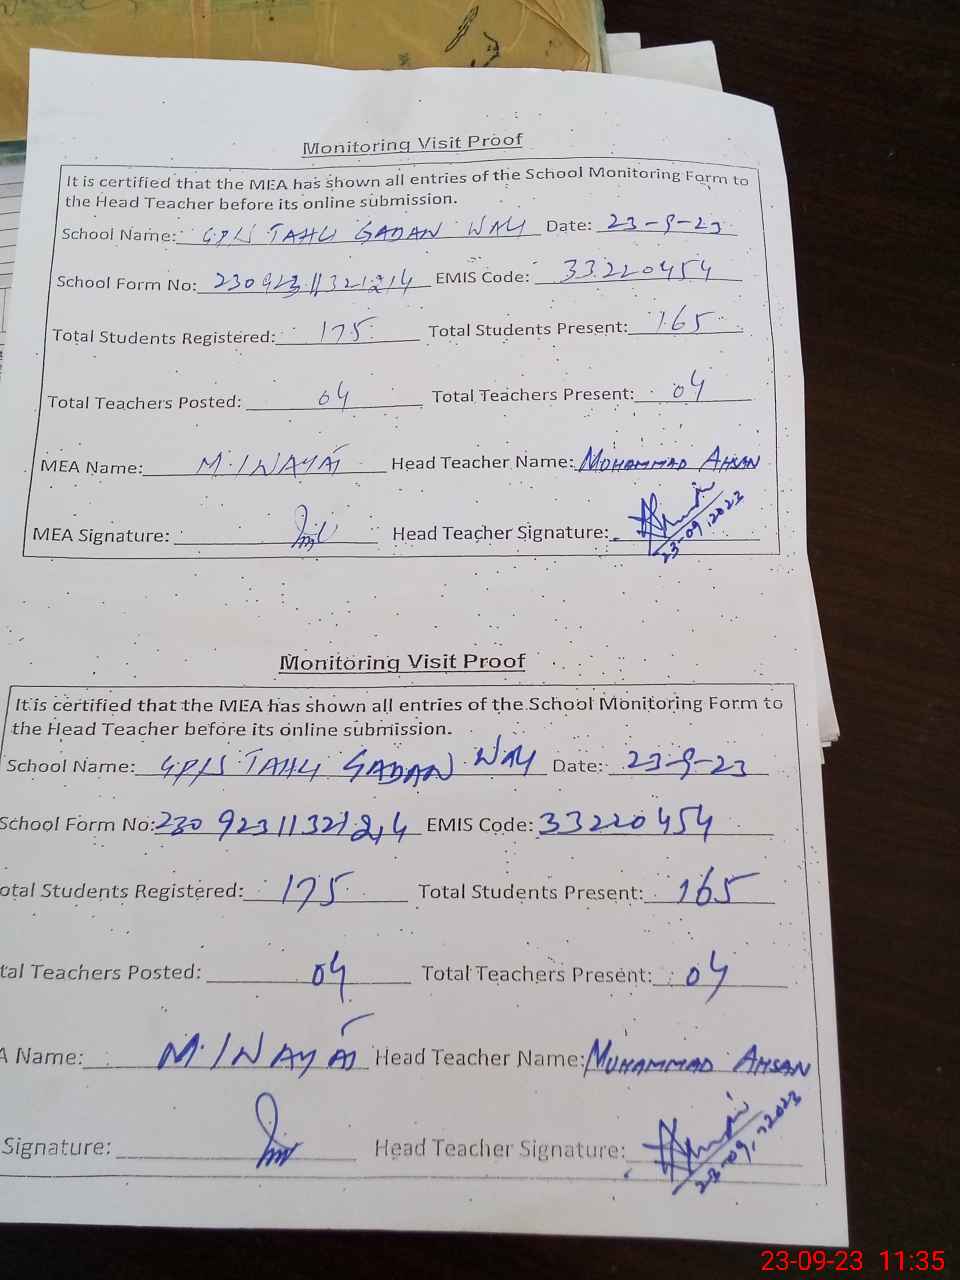 Monitoring Visit Proof
It is certified that the MEA has shown all entries of the School Monitoring Form to
the Head Teacher before its online submission.
School Name: GPS TAHLI GADAN WALI Date: 23-9-23
School Form No: 23092311321214 EMIS Code: 33220454
Total Students Registered: 175 Total Students Present: 165
Total Teachers Posted: 04 Total Teachers Present: 04
MEA Name: M. INAYAT Head Teacher Name: MUHAMMAD AHSAN
MEA Signature: Head Teacher Signature:
23-09,2023
Monitoring Visit Proof
It is certified that the MEA has shown all entries of the School Monitoring Form to
the Head Teacher before its online submission.
School Name: GPS TAHLI GADAN WALI Date: 23-9-23
School Form No: 23092311321214 EMIS Code: 33220454
otal Students Registered: 175 Total Students Present: 165
tal Teachers Posted: 04 Total Teachers Present: 04
A Name: M. INAYAT Head Teacher Name: MUHAMMAD AHSAN
Signature: Head Teacher Signature:
23-09,2023
23-09-23 11:35